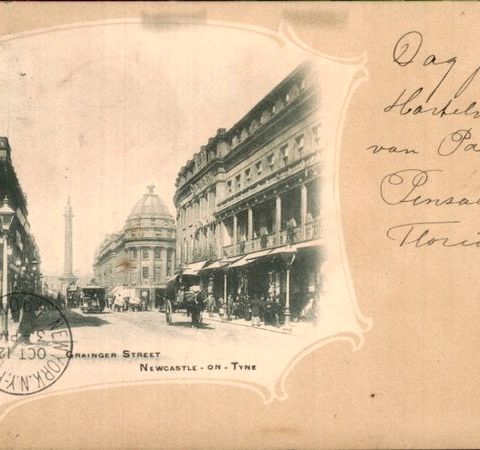 Dag
van Pa
Pensa
Florid
GRAINGER STREET
NEWCASTLE - ON - TYNE
NEW YORK, N.Y.
OCT 12